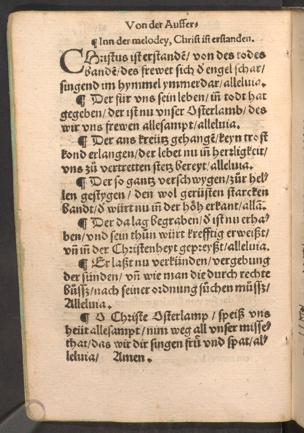 Von der Auffers
¶ Inn der melodey, Christ ist erstanden.
CHristus ist erstandẽ / von des todes
bandẽ / des frewet sich ď engel schar /
singend im hymmel ymmerdar / alleluia.
¶ Der für vns sein leben / in̄ todt hat
gegeben / der ist nu vnser Osterlamb / des
wir vns frewen allesampt / alleluia.
¶ Der ans kreütz gehangẽ / keyn trost
kond erlangen / der lebet nu in̄ herzligkeit /
vns zů vertretten stetz bereyt / alleluia.
¶ Der so gantz verschwygen / zůr hel-
len gestygen / den wol gerüsten starcken
bandt / ď würt nu in̄ der höh erkant / alla.
¶ Der da lag begraben / ď ist nu erha-
ben / vnd sein thůn würt krefftig erweißt /
vn̄ in der Christenheyt gepreyßt / alleluia.
¶ Er laßt nu verkünden / vergebung
der sünden / vn̄ wie man die durch rechte
bůßz / nach seiner ordnung sůchen můßz /
Alleluia.
¶ O Christe Osterlamp / speiß vns
heüt allesampt / nim weg all vnser misse-
that / das wir dir singen frů vnd spat / al-
leluia / Amen.